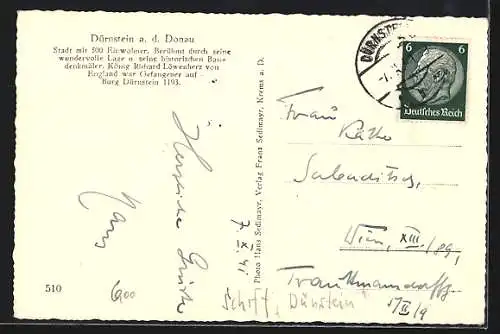 Dürnstein a. d. Donau
Stadt mit 500 Einwohner. Berühmt durch seine
wundervolle Lage u. seine historischen Bau-
denkmäler. König Richard Löwenherz von
England war Gefangener auf
Burg Dürnstein 1193.
Herzliche Grüße
Hans
7. X. 41
600
510
Photo Hans Sedlmayr, Verlag Franz Sedlmayr, Krems a. D.
DÜRNSTE
6 6
Deutsches Reich
Frau
Käthe
Wien, XIII./89,
Trauttmansdorffg.
Schiff, Dürnstein